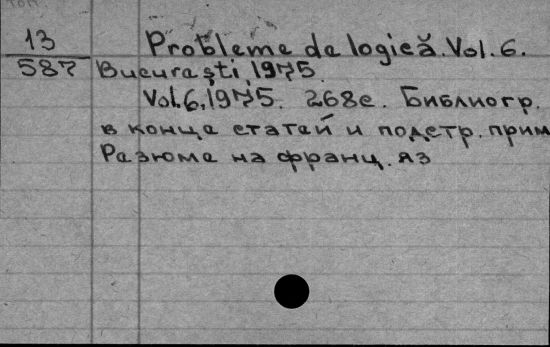 13
587
Probleme de logică. Vol. 6.
Bucureşti, 1975.
Vol. 6, 1975. 268с. Библиогр.
в конце статей и подстр. прим
Резюме на франц. яз